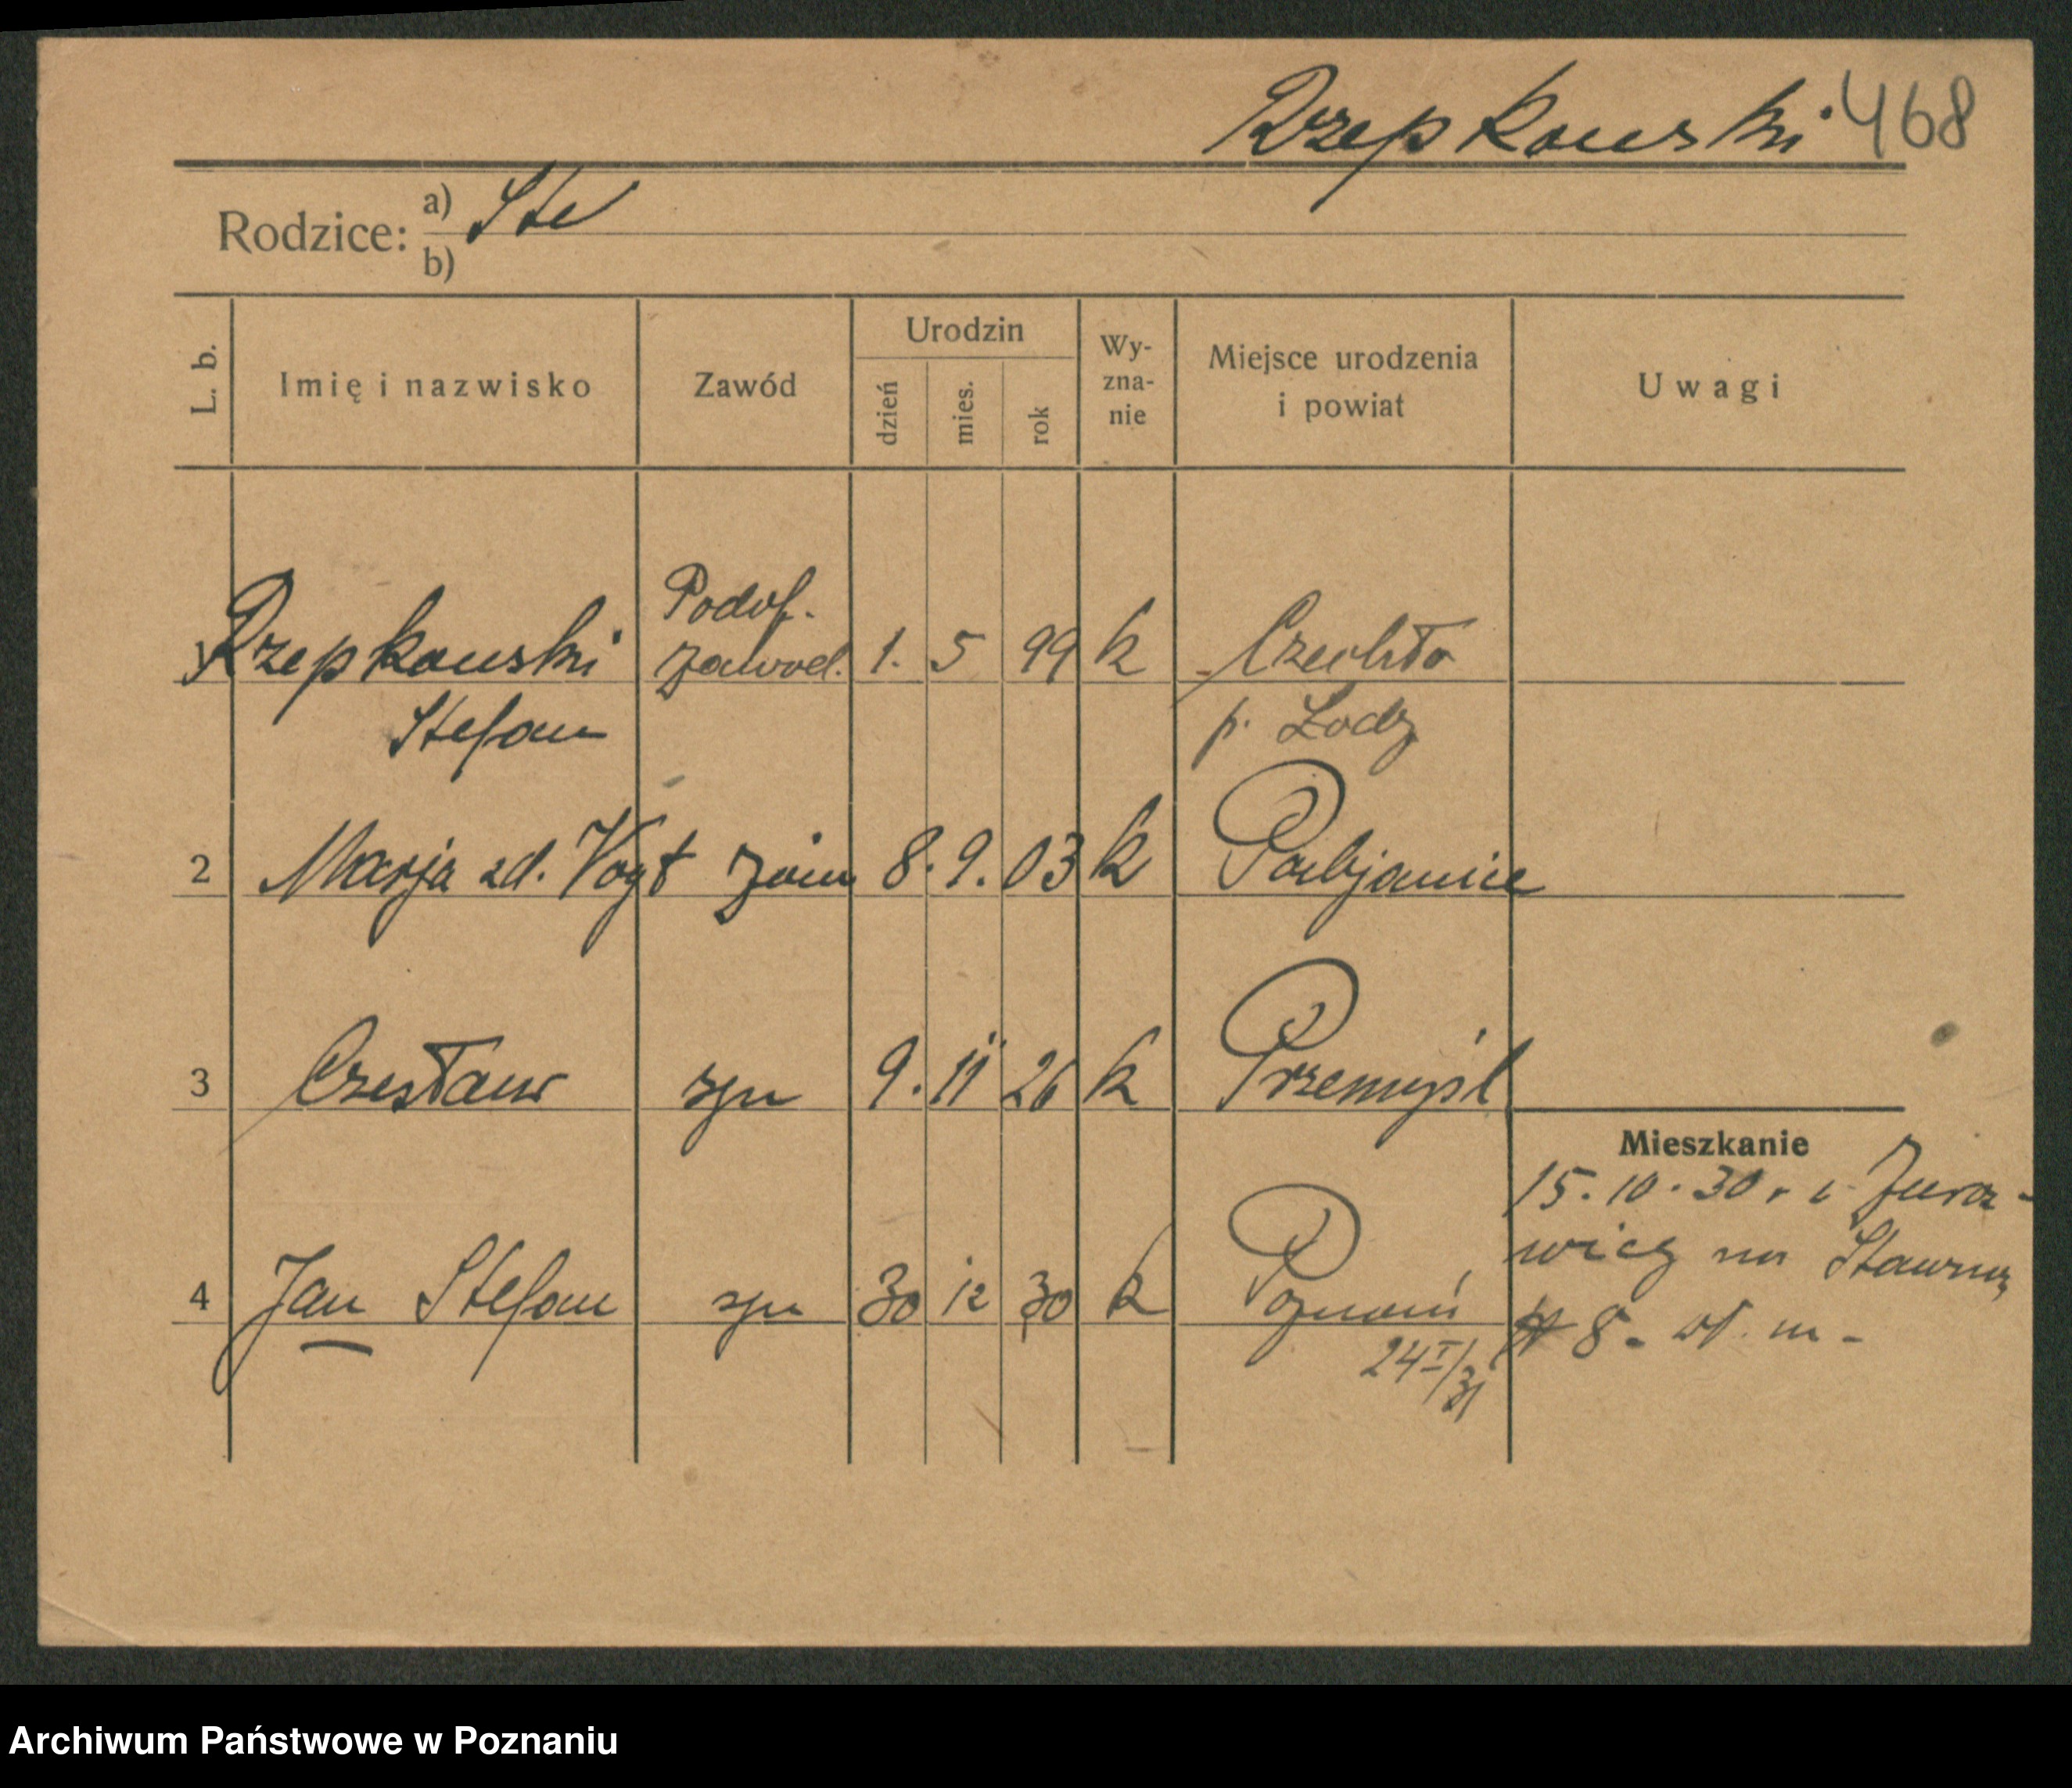 Rzepkowski 468
Rodzice: a) Ste
b)
L. b. Imię i nazwisko Zawód Urodzin dzień mies. rok Wy-zna-nie Miejsce urodzenia i powiat Uwagi
Podof.
1 Rzepkowski zawod. 1. 5 99 k Czechło
Stefan p. Lodz
2 Marja zd. Vogt żona 8. 9. 03 k Pabjanice
3 Czesław syn 9. 11 26 k Przemyśl
Mieszkanie
15.10.30 r
wicz na
4 Jan Stefan syn 30 12 30 k Poznań
8.
24 I/31
Archiwum Państwowe w Poznaniu